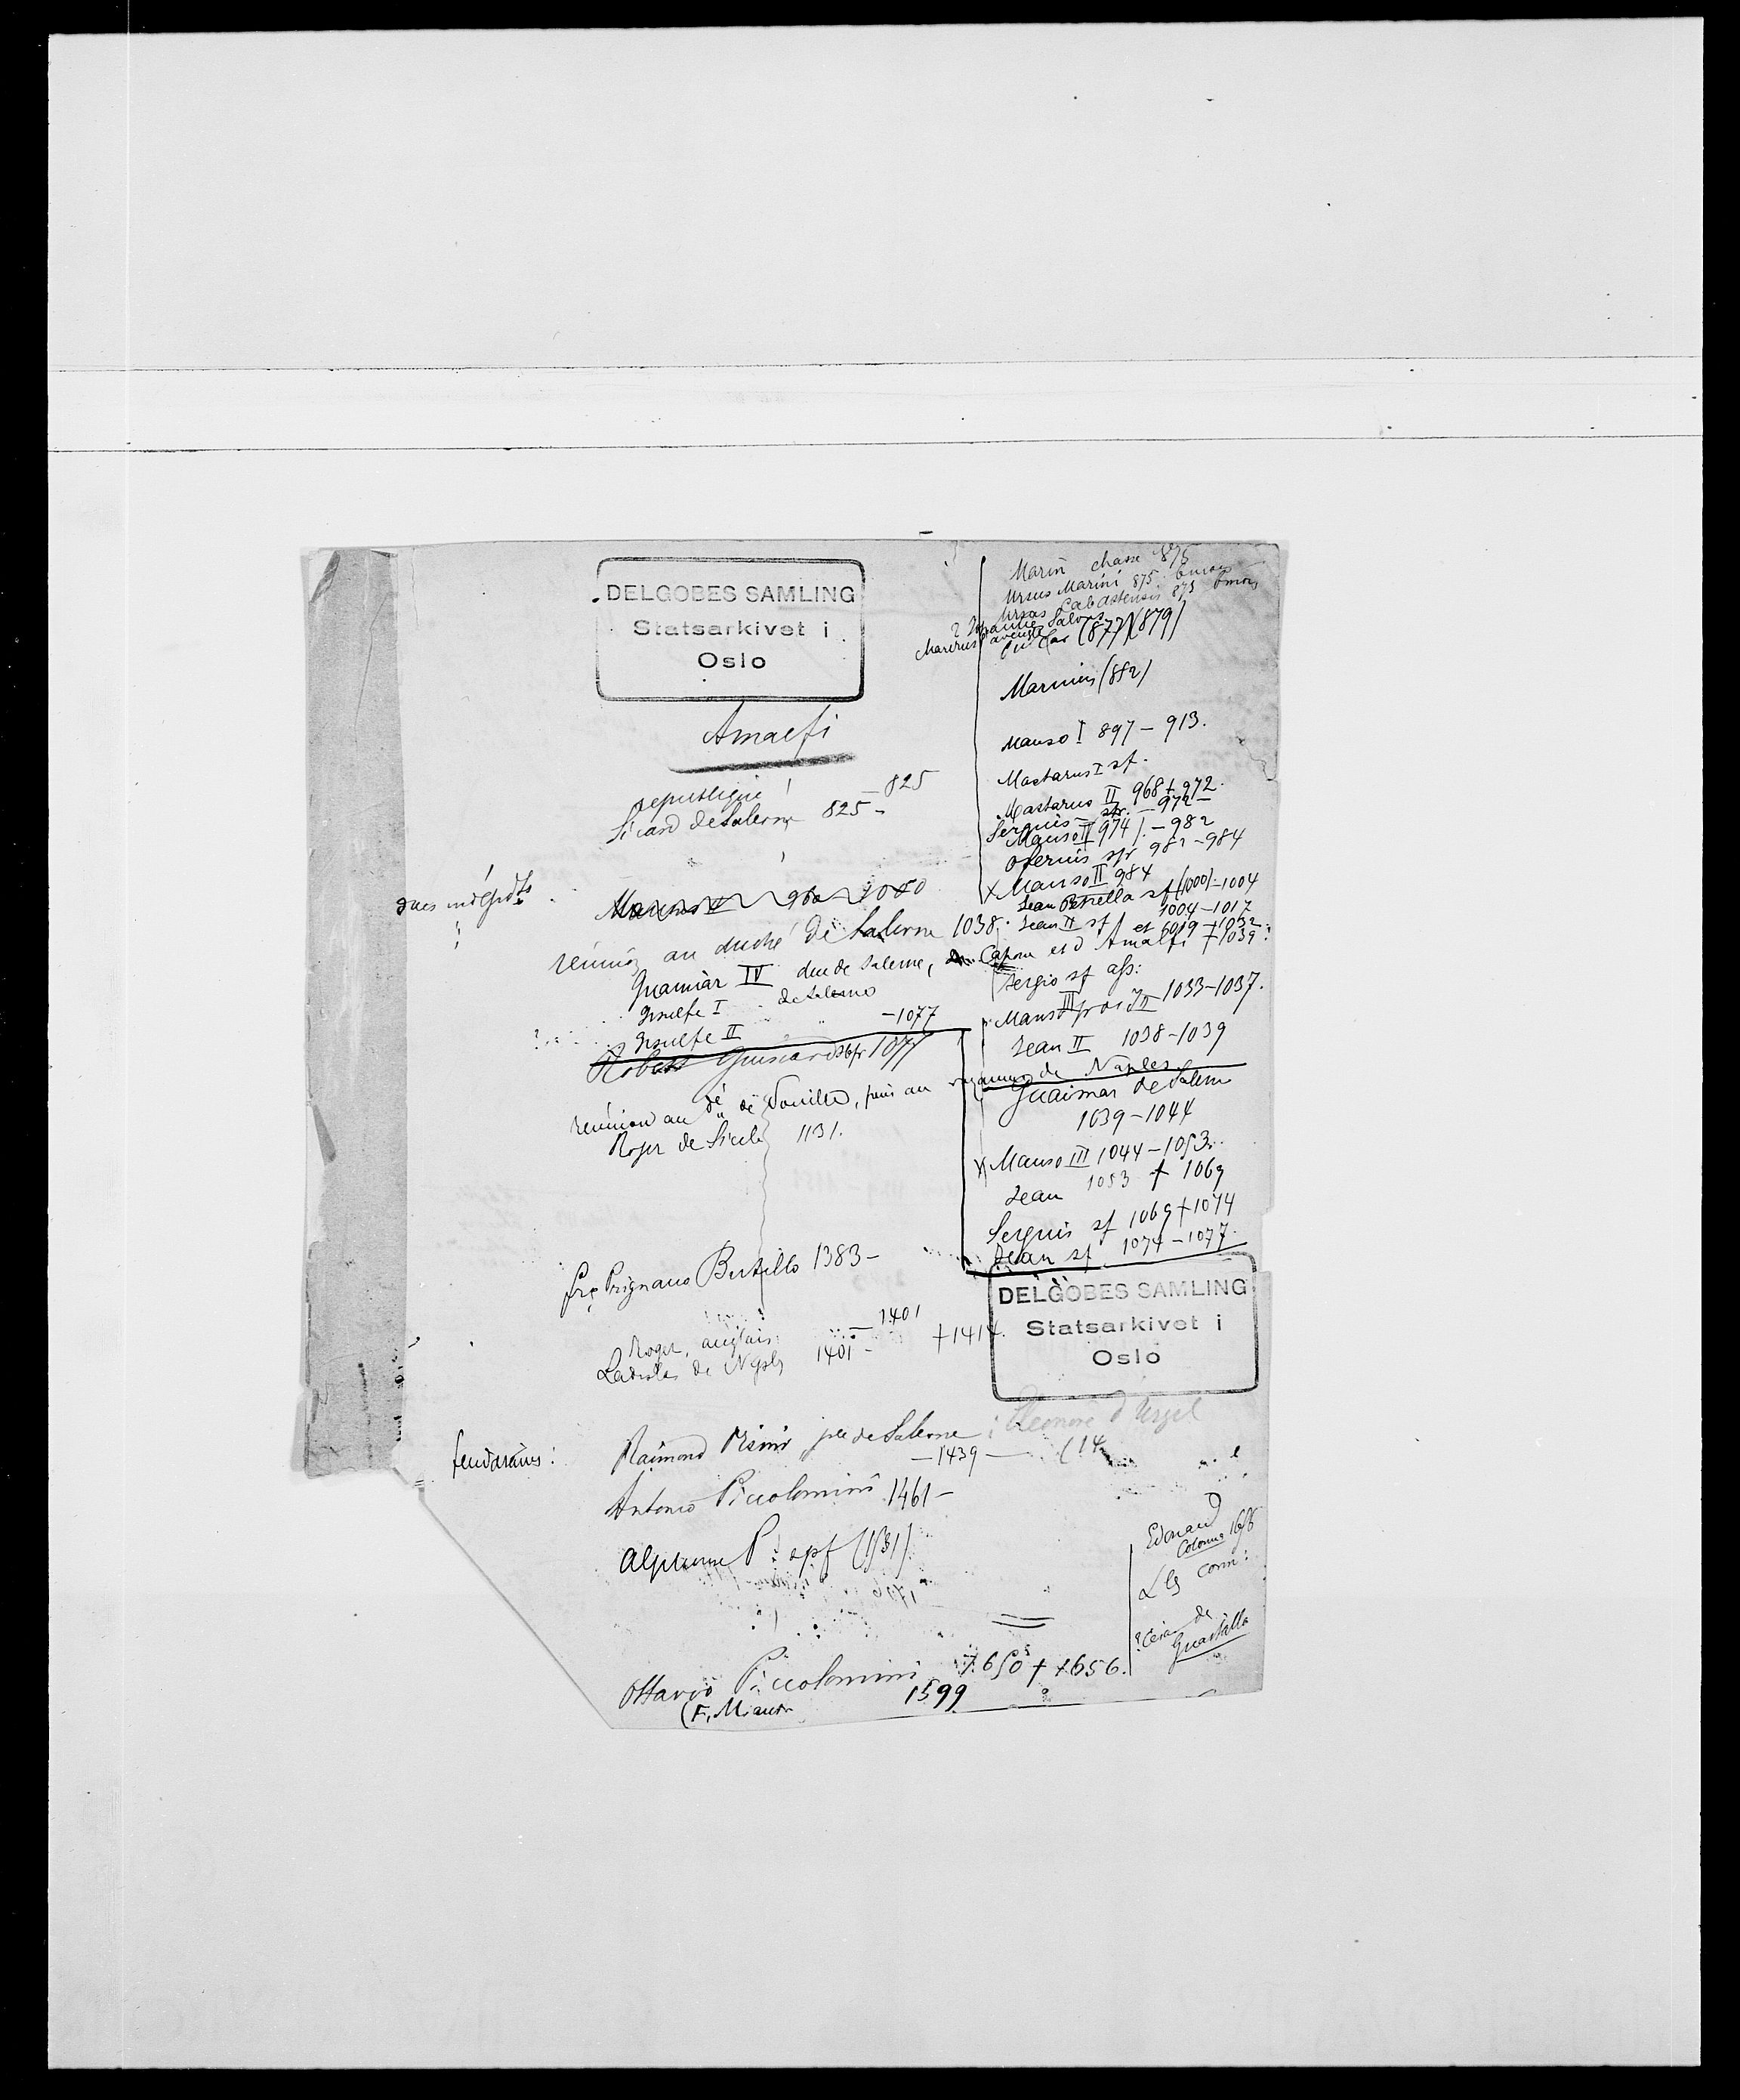 DELGOBES SAMLING
Statsarkivet i
Oslo
Amalfi
republique — 825
Sicard de Salerne 825 -
ducs indépdts
réunion au duché de Salerne 1038.
Guaimar IV duc de Salerne, Capoue et d'Amalfi
Gisulfe I de Salerno
Gisulfe II — 1077
Robert Guiscard 1077
réunion au dé de Pouille, puis au royaume de Naples
Roger de Sicile 1131.
Frç Prignano Butillo 1383 —
Roger, anglais — 1401
Ladislas de Naples 1401 - † 1414.
feudataires :
Raimond Orsini pce de Salerne : Eleonore d'Urgel
— 1439 — (14
Antonio Piccolomini 1461 —
Alphonse P : spf (1531)
Ottavio Piccolomini 1650 † 1656.
1599
Marin chasse 875
Ursus Marini 875 6 mois
Ursus Calastensis 873 6 mois
Pulcar (877) (879)
Marinus (882)
Manso I 897 — 913.
Mastarus I sf.
Mastarus II 968 † 972.
Sergius — 972 —
Manso II 974 — 982
Oferius sfr 982 - 984
× Manso II 984
Jean Petrella sf (1000) - 1004
1004 — 1017
Jean II sf et 1019 — 1032
† 1039 :
Sergio sf ass :
Manso III 1033 - 1037.
Jean II 1038 - 1039
Guaimar de Salerne
1039 - 1044
× Manso III 1044 — 1053.
Jean 1053 † 1069
Sergius sf 1069 † 1074
Jean sf 1074 - 1077.
DELGOBES SAMLING
Statsarkivet i
Oslo
Edouard
Colonna
de
Guastalla